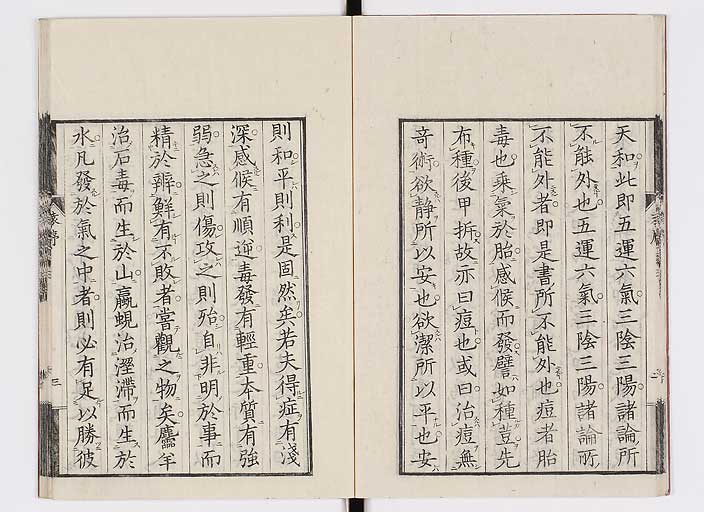 天和此即五運六氣三陰三陽諸論所
不能外也五運六氣三陰三陽諸論所
不能外者即是書所不能外也痘者胎
毒也乘氣於胎感候而發譬如種豆先
布種後甲拆故亦曰痘也或曰治痘無
奇術欲静所以安也欲潔所以平也安
則和平則利是固然矣若夫得症有淺
深感候有順逆毒發有輕重本質有強
弱急之則傷攻之則殆自非明於事而
精於辨鮮有不敗者當觀之物矣麝
治石毒而生於山蠃蜆治溼滯而生於
水凡發於氣之中者則必有足以勝彼